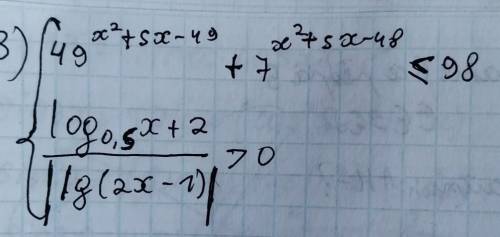 3) { 49^{x²+5x-49} + 7^{x²+5x-48} ≤ 98
log_{0,5} x + 2 / |lg(2x-1)| > 0